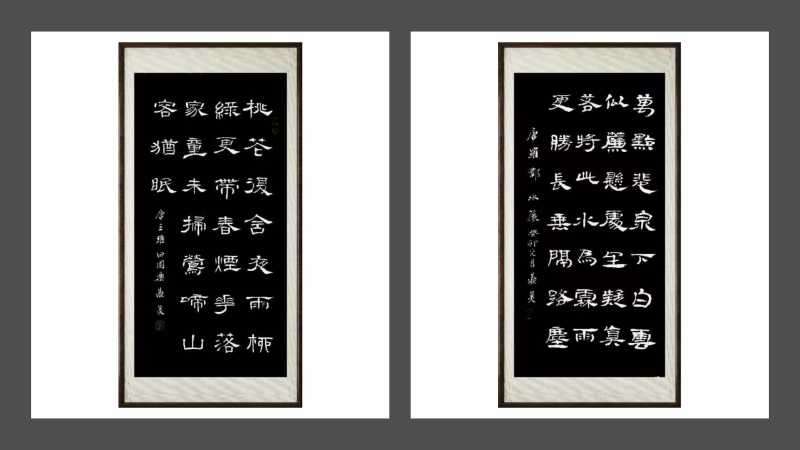 桃花復含夜雨柳
綠更帶春煙花落
家童未掃鶯啼山
客猶眠
唐王維田園樂
萬點飛泉下白雲
似簾懸處望疑真
若將此水為霖雨
更勝長垂隔路塵
唐羅鄴水簾癸卯